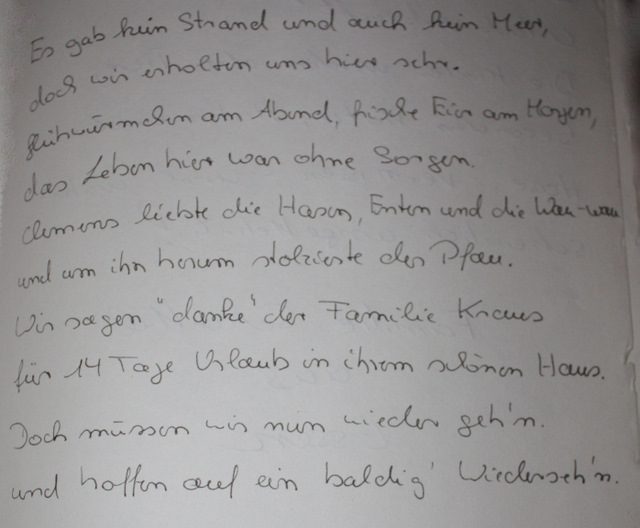 Es gab kein Strand und auch kein Meer,
doch wir erholten uns hier sehr.
glühwürmchen am Abend, frische Eier am Morgen,
das Leben hier war ohne Sorgen.
Clemens liebte die Hasen, Enten und die Wau-wau
und um ihn herum stolzierte der Pfau.
Wir sagen "danke" der Familie Kraus
für 14 Tage Urlaub in ihrem schönen Haus.
Doch müssen wir nun wieder geh'n.
und hoffen auf ein baldig' Wiederseh'n.